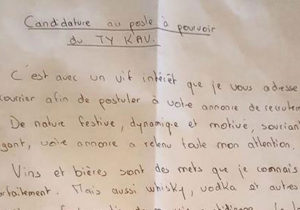 Candidature au poste à pourvoir
du TY KAV.
C'est avec un vif intérêt que je vous adresse
courrier afin de postuler à votre annonce de
De nature festive, dynamique et motivé, souriant
votre annonce a retenu toute mon attention.
Vins et bières sont des mets que je connais
Mais aussi whisky, vodka et autres